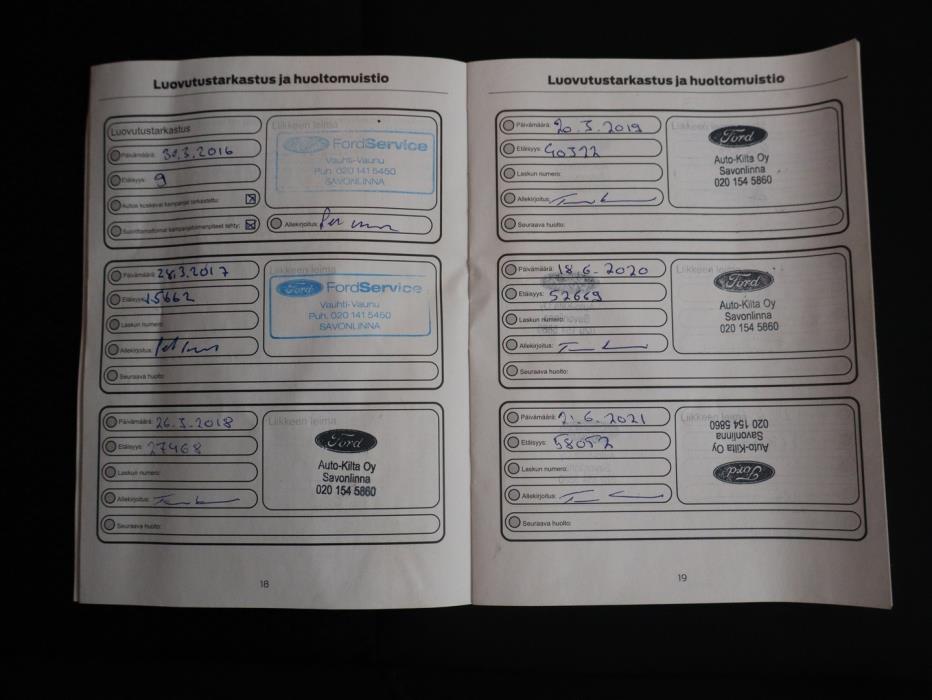 Luovutustarkastus ja huoltomuistio
Luovutustarkastus
Päivämäärä: 30.3.2016
Etäisyys: 9
Autoa koskevat kampanjat tarkastettu:
Suorittamattomat kampanjatoimenpiteet tehty:
Liikkeen leima
Ford FordService
Vauhti-Vaunu
Puh. 020 141 5450
SAVONLINNA
Allekirjoitus:
Päivämäärä: 28.3.2017
Etäisyys: 15662
Laskun numero:
Allekirjoitus:
Seuraava huolto:
Liikkeen leima
Ford FordService
Vauhti-Vaunu
Puh. 020 141 5450
SAVONLINNA
Päivämäärä: 26.3.2018
Etäisyys: 27468
Laskun numero:
Allekirjoitus:
Seuraava huolto:
Liikkeen leima
Ford
Auto-Kilta Oy
Savonlinna
020 154 5860
18
Luovutustarkastus ja huoltomuistio
Päivämäärä: 20.3.2019
Etäisyys: 40372
Laskun numero:
Allekirjoitus:
Seuraava huolto:
Liikkeen leima
Ford
Auto-Kilta Oy
Savonlinna
020 154 5860
Päivämäärä: 18.6.2020
Etäisyys: 52669
Laskun numero:
Allekirjoitus:
Seuraava huolto:
Liikkeen leima
Ford
Auto-Kilta Oy
Savonlinna
020 154 5860
Päivämäärä: 21.6.2021
Etäisyys: 58057
Laskun numero:
Allekirjoitus:
Seuraava huolto:
Liikkeen leima
Ford
Auto-Kilta Oy
Savonlinna
020 154 5860
19